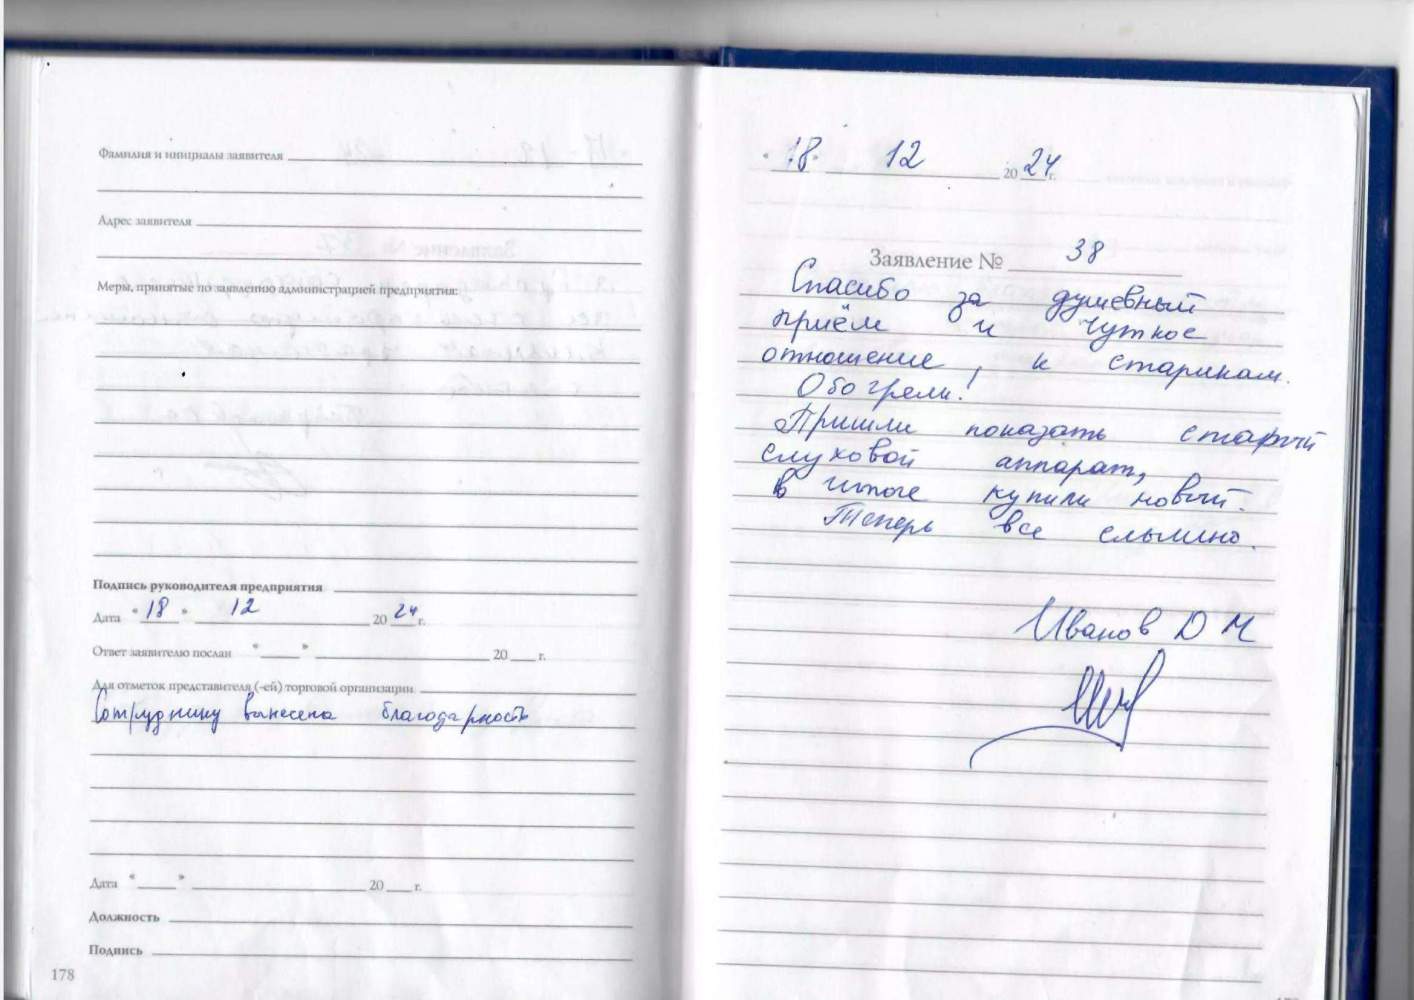 Фамилия и инициалы заявителя
Адрес заявителя
Меры, принятые по заявлению администрацией предприятия:
Подпись руководителя предприятия
Дата "18" 12 2024 г.
Ответ заявителю послан " " 20 г.
Для отметок представителя (-ей) торговой организации
Сотруднику вынесена благодарность
Дата " " 20 г.
Должность
Подпись
178
"18" 12 2024 г.
Заявление № 38
Спасибо за душевный
приём и чуткое
отношение, к старикам.
Обогрели!
Пришли показать старый
слуховой аппарат,
в итоге купили новый.
Теперь все слышно.
Иванов Д М